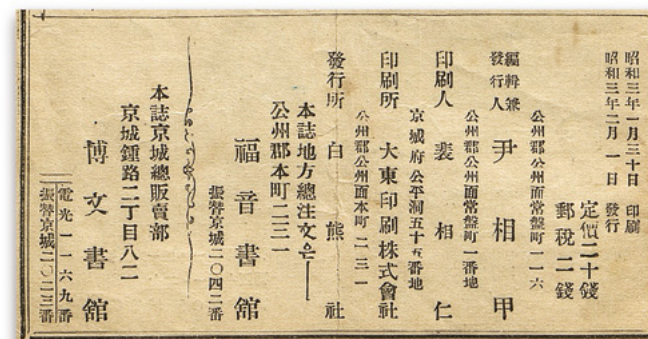 昭和三年一月三十日 印刷
昭和三年二月 一日 發行
定價二十錢
郵稅二錢
公州郡公州面常盤町一一六
編輯兼發行人 尹相甲
公州郡公州面常盤町一番地
印刷人 裴相仁
京城府公平洞五十五番地
印刷所 大東印刷株式會社
公州郡公州面本町二三一
發行所 白熊社
本誌地方總注文은─
公州郡本町二三一
福音書舘
振替京城二〇四二番
本誌京城總販賣部
京城鍾路二丁目八二
博文書舘
電光一一六九番
振替京城二〇二三番